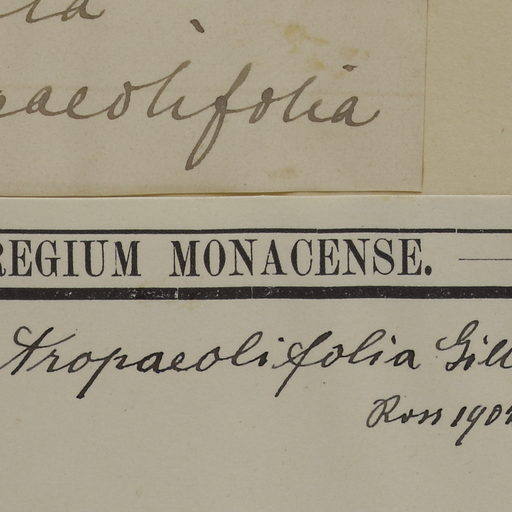 paeolifolia
REGIUM MONACENSE.
tropaeolifolia Gill
Ross 190